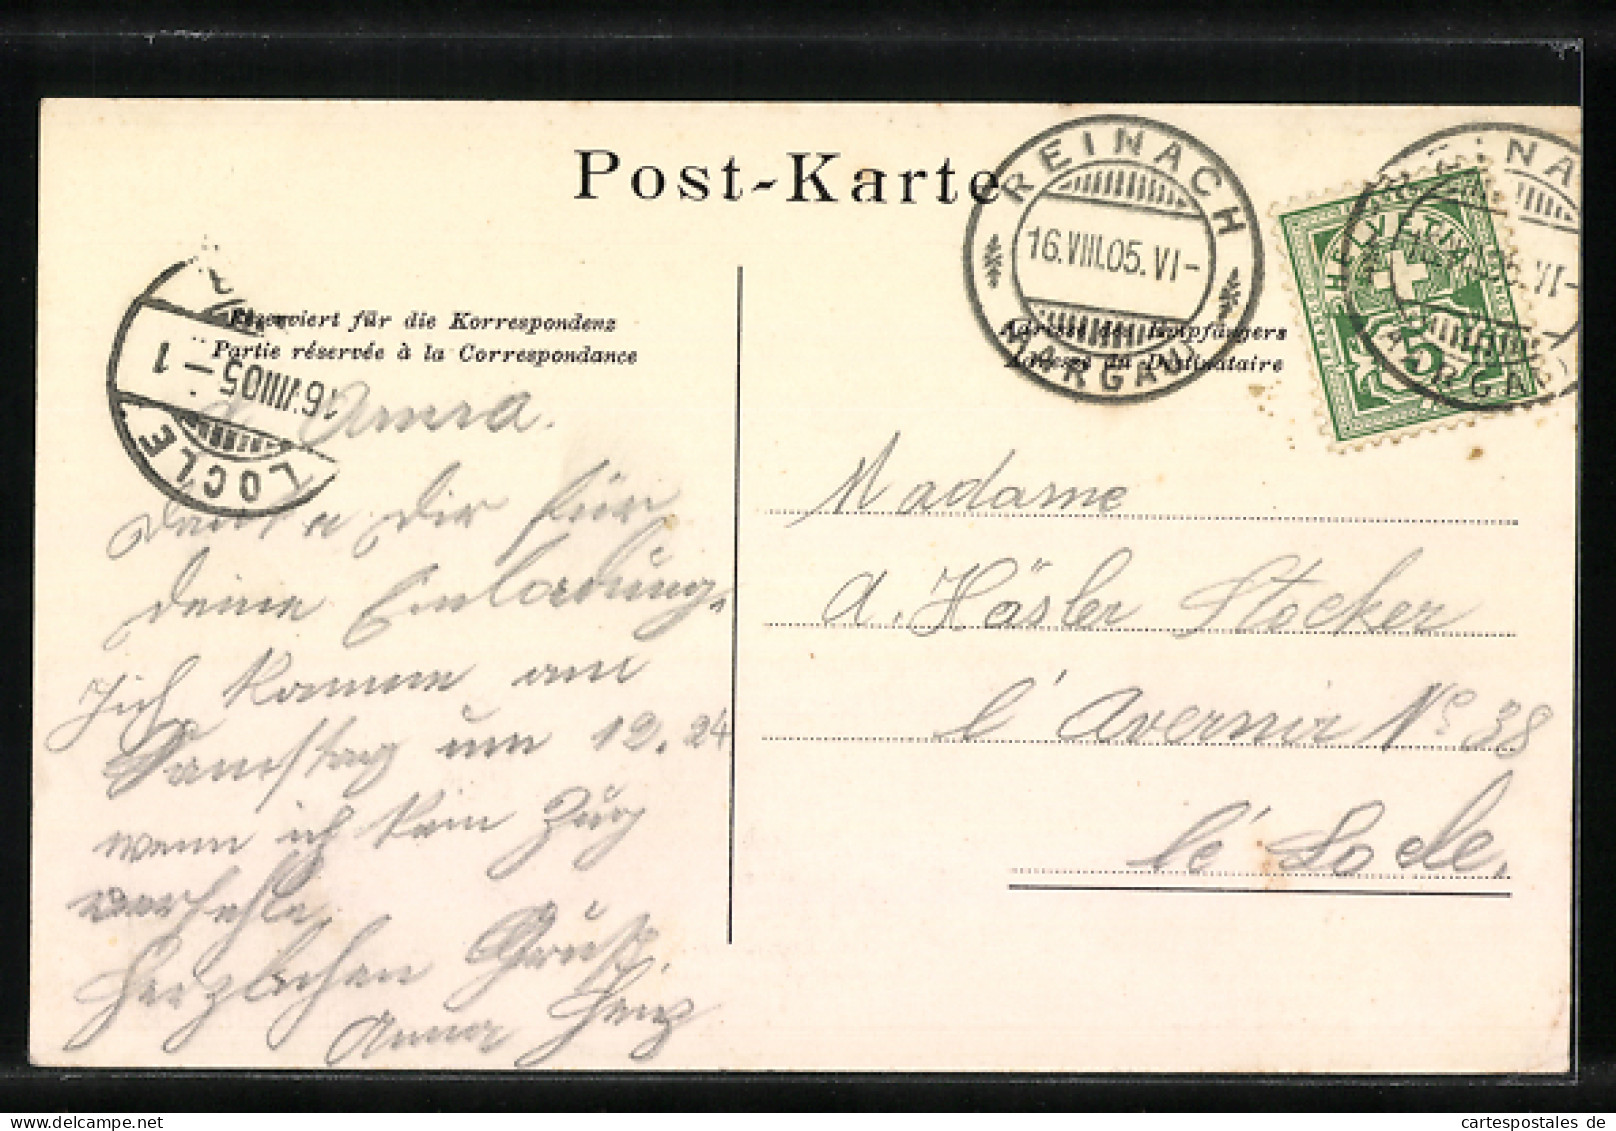 Post-Karte
REINACH
16.VIII.05.VI-
(AARGAU)
HELVETIA
5
Reserviert für die Korrespondenz
Partie réservée à la Correspondance
Adresse des Empfängers
Adresse du Destinataire
LOCLE
16.VIII.05-1
L. Anna.
Danke dir für
deine Einladung.
Ich komme am
Samstag um 12.24
wenn ich kein Zug
verfehle.
Herzlichen Gruss.
Anna Henz
Madame
A. Häsler Stocker
l'Avernir No 38
lé Locle.
cartespostales.de